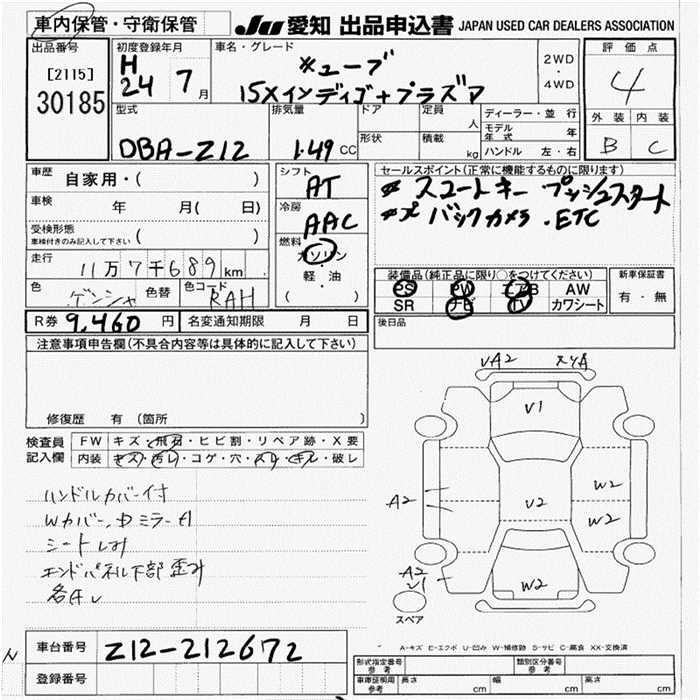 車内保管・守衛保管
JU 愛知 出品申込書 JAPAN USED CAR DEALERS ASSOCIATION
出品番号
[2115]
30185
初度登録年月
H
24 7月
車名・グレード
キューブ
15Xインディゴ+プラズマ
2WD
・
4WD
評価点
4
外装 内装
B C
型式
DBA-Z12
排気量
1.49 CC
ドア
形状
定員
人
積載
kg
ディーラー・並行
モデル年式 年
ハンドル 左・右
車歴
自家用・( )
車検
年 月( 日)
受検形態
車検付きのみ記入して下さい ( )
走行
11万7千689km
色
色替
色コード
RAH
R券 9,460 円
名変通知期限 月 日
シフト
AT
冷房
AAC
燃料
ガソリン
・
軽・油
( )
セールスポイント(正常に機能するものに限ります)
キー プッシュスタート
バックカメラ.ETC
装備品(純正品に限り○をつけてください)
PS PW エアB AW
SR ナビ TV カワシート
新車保証書
有・無
後日品
注意事項申告欄(不具合内容等は具体的に記入して下さい)
修復歴 有(箇所 )
検査員
記入欄
FW キズ・飛石・ヒビ割・リペア跡・X要
内装 キズ・汚レ・コゲ・穴・スレ・キレ・破レ
ハンドルカバー付
Wカバー、Dミラーキ
シートしみ
エンドパネル下部歪み
各キレ
VA2
V1
A2
V2
W2
W2
A2
V1
W2
スペア
A-キズ E-エクボ U-凹み W-補修跡 S-サビ C-腐食 XX-交換済
車台番号 Z12-212672
登録番号
形式指定番号
参考
類別区分番号
参考
車庫証明用
参考
長さ cm
幅 cm
高さ cm